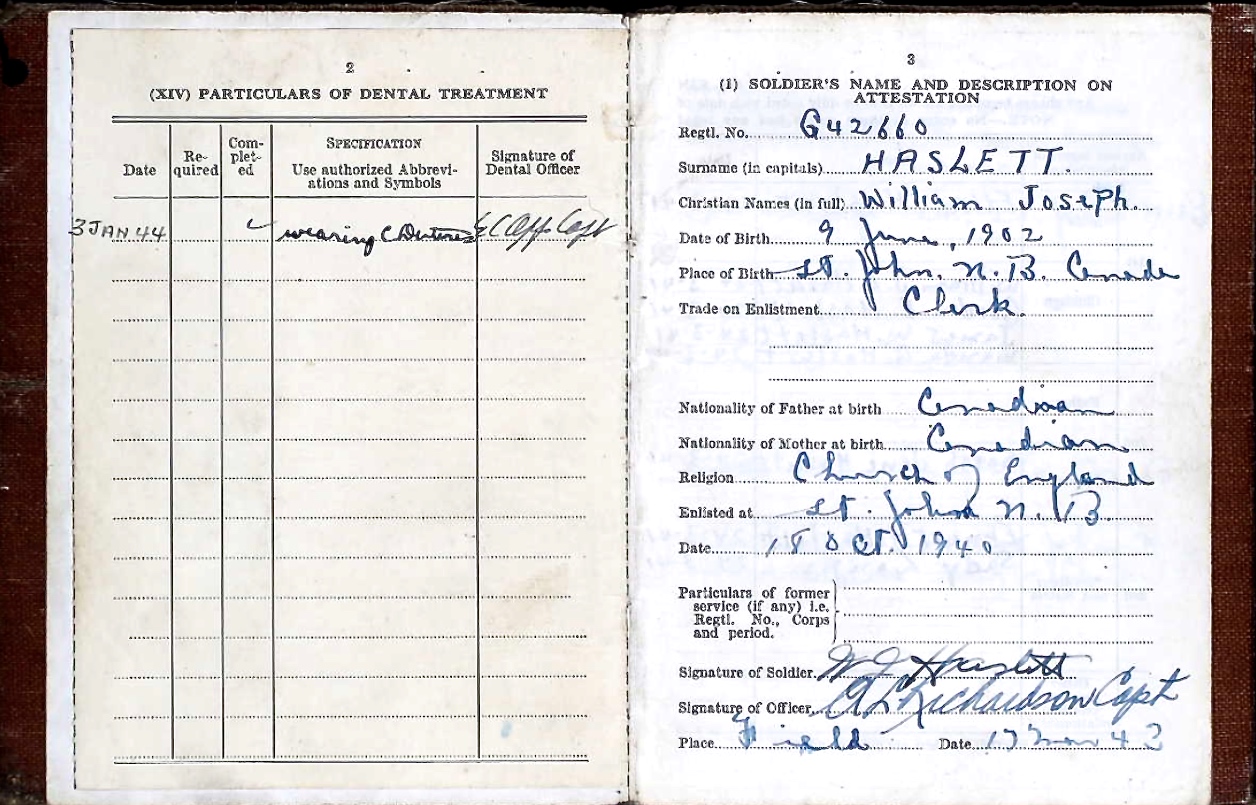 2
(XIV) PARTICULARS OF DENTAL TREATMENT
Date
Re-
quired
Com-
plet-
ed
SPECIFICATION
Use authorized Abbrevi-
ations and Symbols
Signature of
Dental Officer
3 JAN 44 ✓ wearing C Dentures Capt
3
(I) SOLDIER'S NAME AND DESCRIPTION ON
ATTESTATION
Regtl. No. G42660
Surname (in capitals) HASLETT.
Christian Names (in full) William Joseph.
Date of Birth 9 June, 1902
Place of Birth St. John. N.B. Canada
Trade on Enlistment Clerk.
Nationality of Father at birth Canadian
Nationality of Mother at birth Canadian
Religion Church of England
Enlisted at St. John N.B.
Date 18 Oct. 1940
Particulars of former
service (if any) i.e.
Regtl. No., Corps
and period.
Signature of Soldier W J Haslett
Signature of Officer Richardson Capt
Place Field Date 17 43